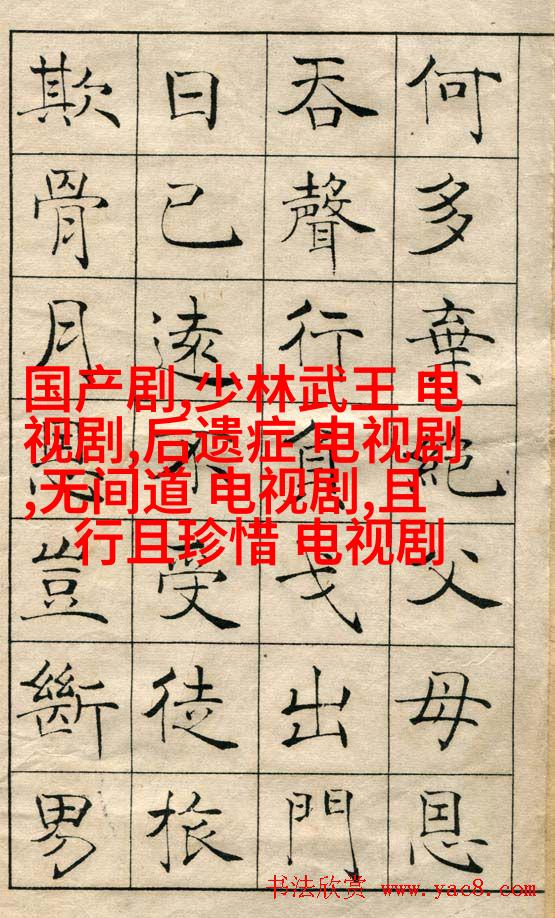 何多棄絕父母恩
吞聲行負戈出門
日已遠不受徒旅
欺骨月恩豈斷男
国产剧,少林武王 电
视剧,后遗症 电视剧
,无间道 电视剧,且
行且珍惜 电视剧
书法欣赏 www.yac8.com